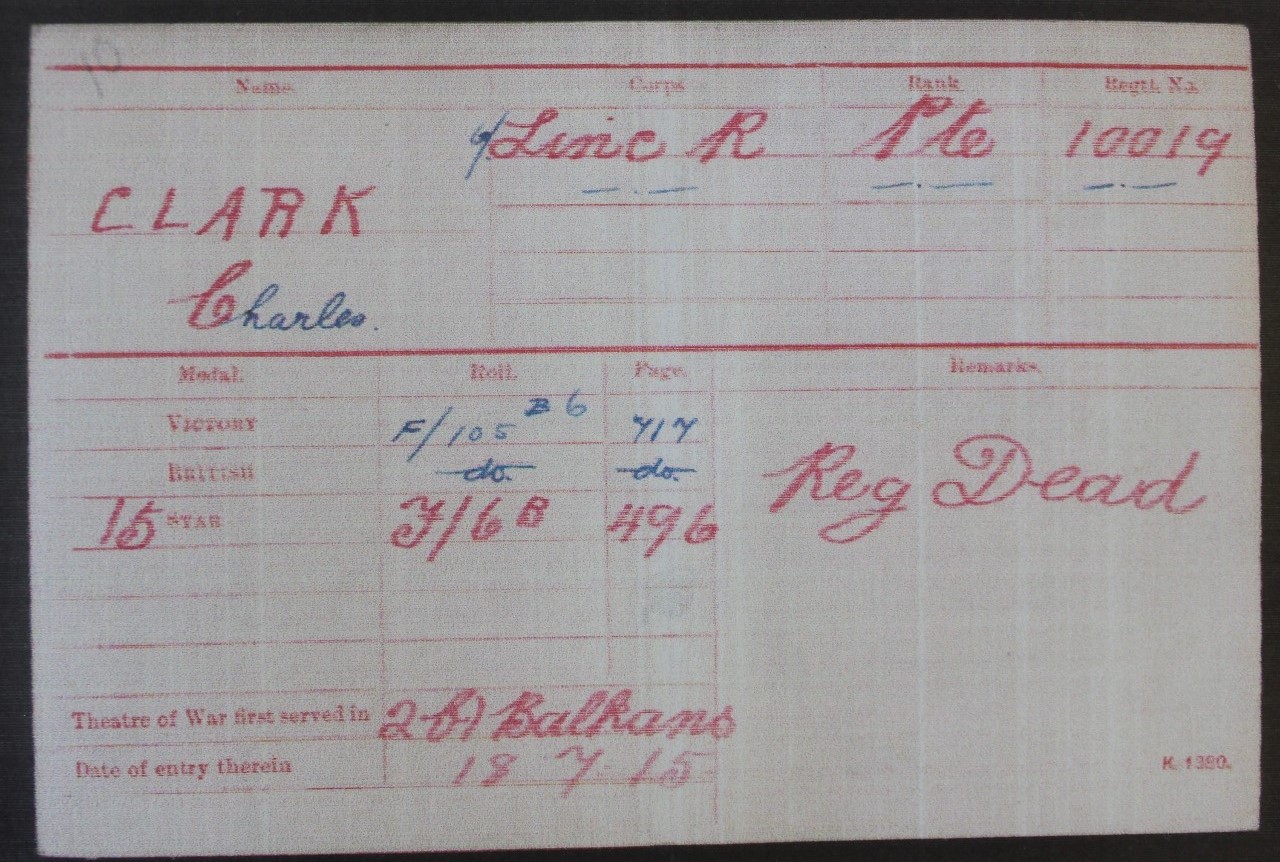 Name. Corps. Rank. Regtl. No.
9/Linc R Pte 10019
CLARK —.— —.— —.—
Charles.
Medal. Roll. Page. Remarks.
VICTORY F/105 B6 717
BRITISH do. do. Reg Dead
15 STAR F/6B 496
Theatre of War first served in 2b) Balkans
Date of entry therein 18-7-15 K. 1380.